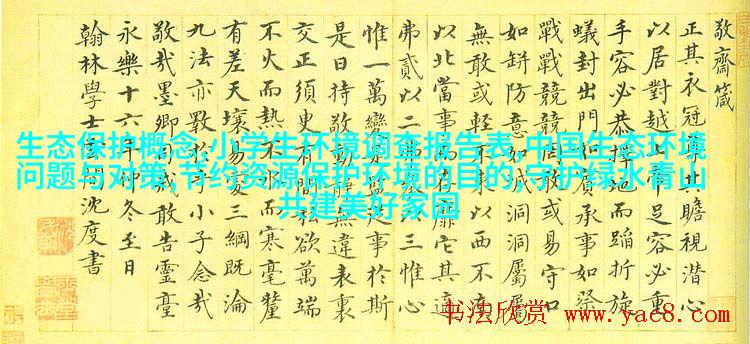 敬齋箴
正其衣冠尊其瞻視潛心
以居對越上帝足容必重
手容必恭擇地而蹈折旋
蟻封出門如賓承事如祭
戰戰兢兢罔敢或易守口
如缾防意如城洞洞屬屬
無敢或輕不東以西不南
以北當事而存靡它其適
弗貳以二弗參以三惟心
惟一萬變是監從事於斯
是曰持敬動靜無違表裏
交正須臾有間私欲萬端
不火而熱不冰而寒毫釐
有差天壤易處三綱既淪
九法亦斁於乎小子念哉
敬哉墨卿司戒敢告靈臺
永樂十六年仲冬至日
翰林學士雲間沈度書
生态保护概念,小学生环境调查报告表,中国生态环境
问题与对策,节约资源保护环境的目的,守护绿水青山
共建美好家园
书法欣赏 www.yac8.com